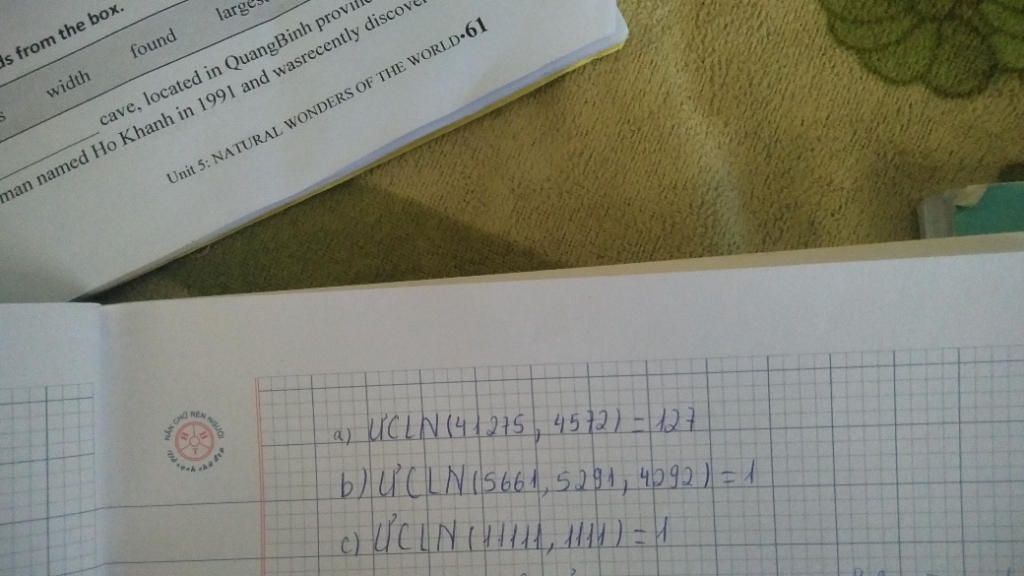 ds from the box.
s width found largest
cave, located in QuangBinh province
man named Ho Khanh in 1991 and wasrecently discover
Unit 5: NATURAL WONDERS OF THE WORLD•61
NẮN CHỮ NẾT NGƯỜI
a) ƯCLN(41275, 4572) = 127
b) ƯCLN(5661, 5291, 4292) = 1
c) ƯCLN(11111, 1111) = 1